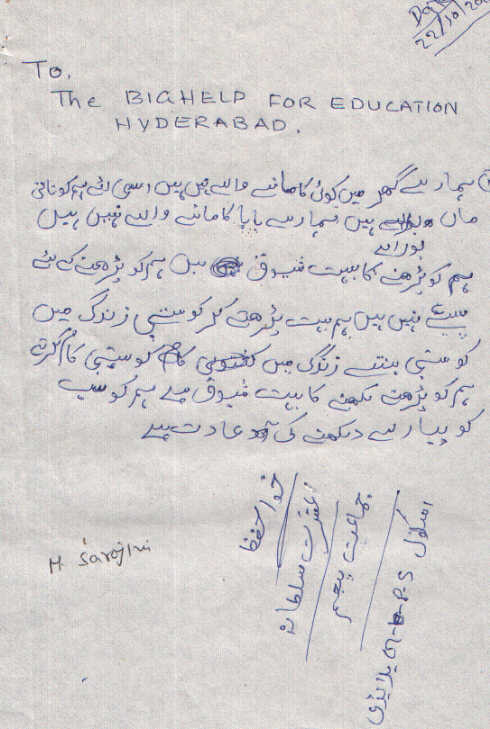 Date
22/10/20
To,
The BIGHELP FOR EDUCATION
HYDERABAD.
ہمارے گھر میں کوئی کامانے والے نہیں ہیں اسی لئے ہم کو نانی
ماں ہیں ہمارے پاپا کامانے والے نہیں ہیں
ہم کو پڑھنے کا بہت شوق ہیں ہم کو پڑھنے کے لئے
پیسے نہیں ہیں ہم بہت پڑھتے کر کو ستی زندگی میں
کو ستی بنتے زندگی میں کام کو ستی کام کرتے
ہم کو پڑھنے لکھنے کا بہت شوق ہے ہم کو سب
کو پیار سے دیکھنے کی عادت ہے
خدا حفظ
عشرت سلطانہ
جماعت پنجم
اسکول G.P.S
H. Sarojini